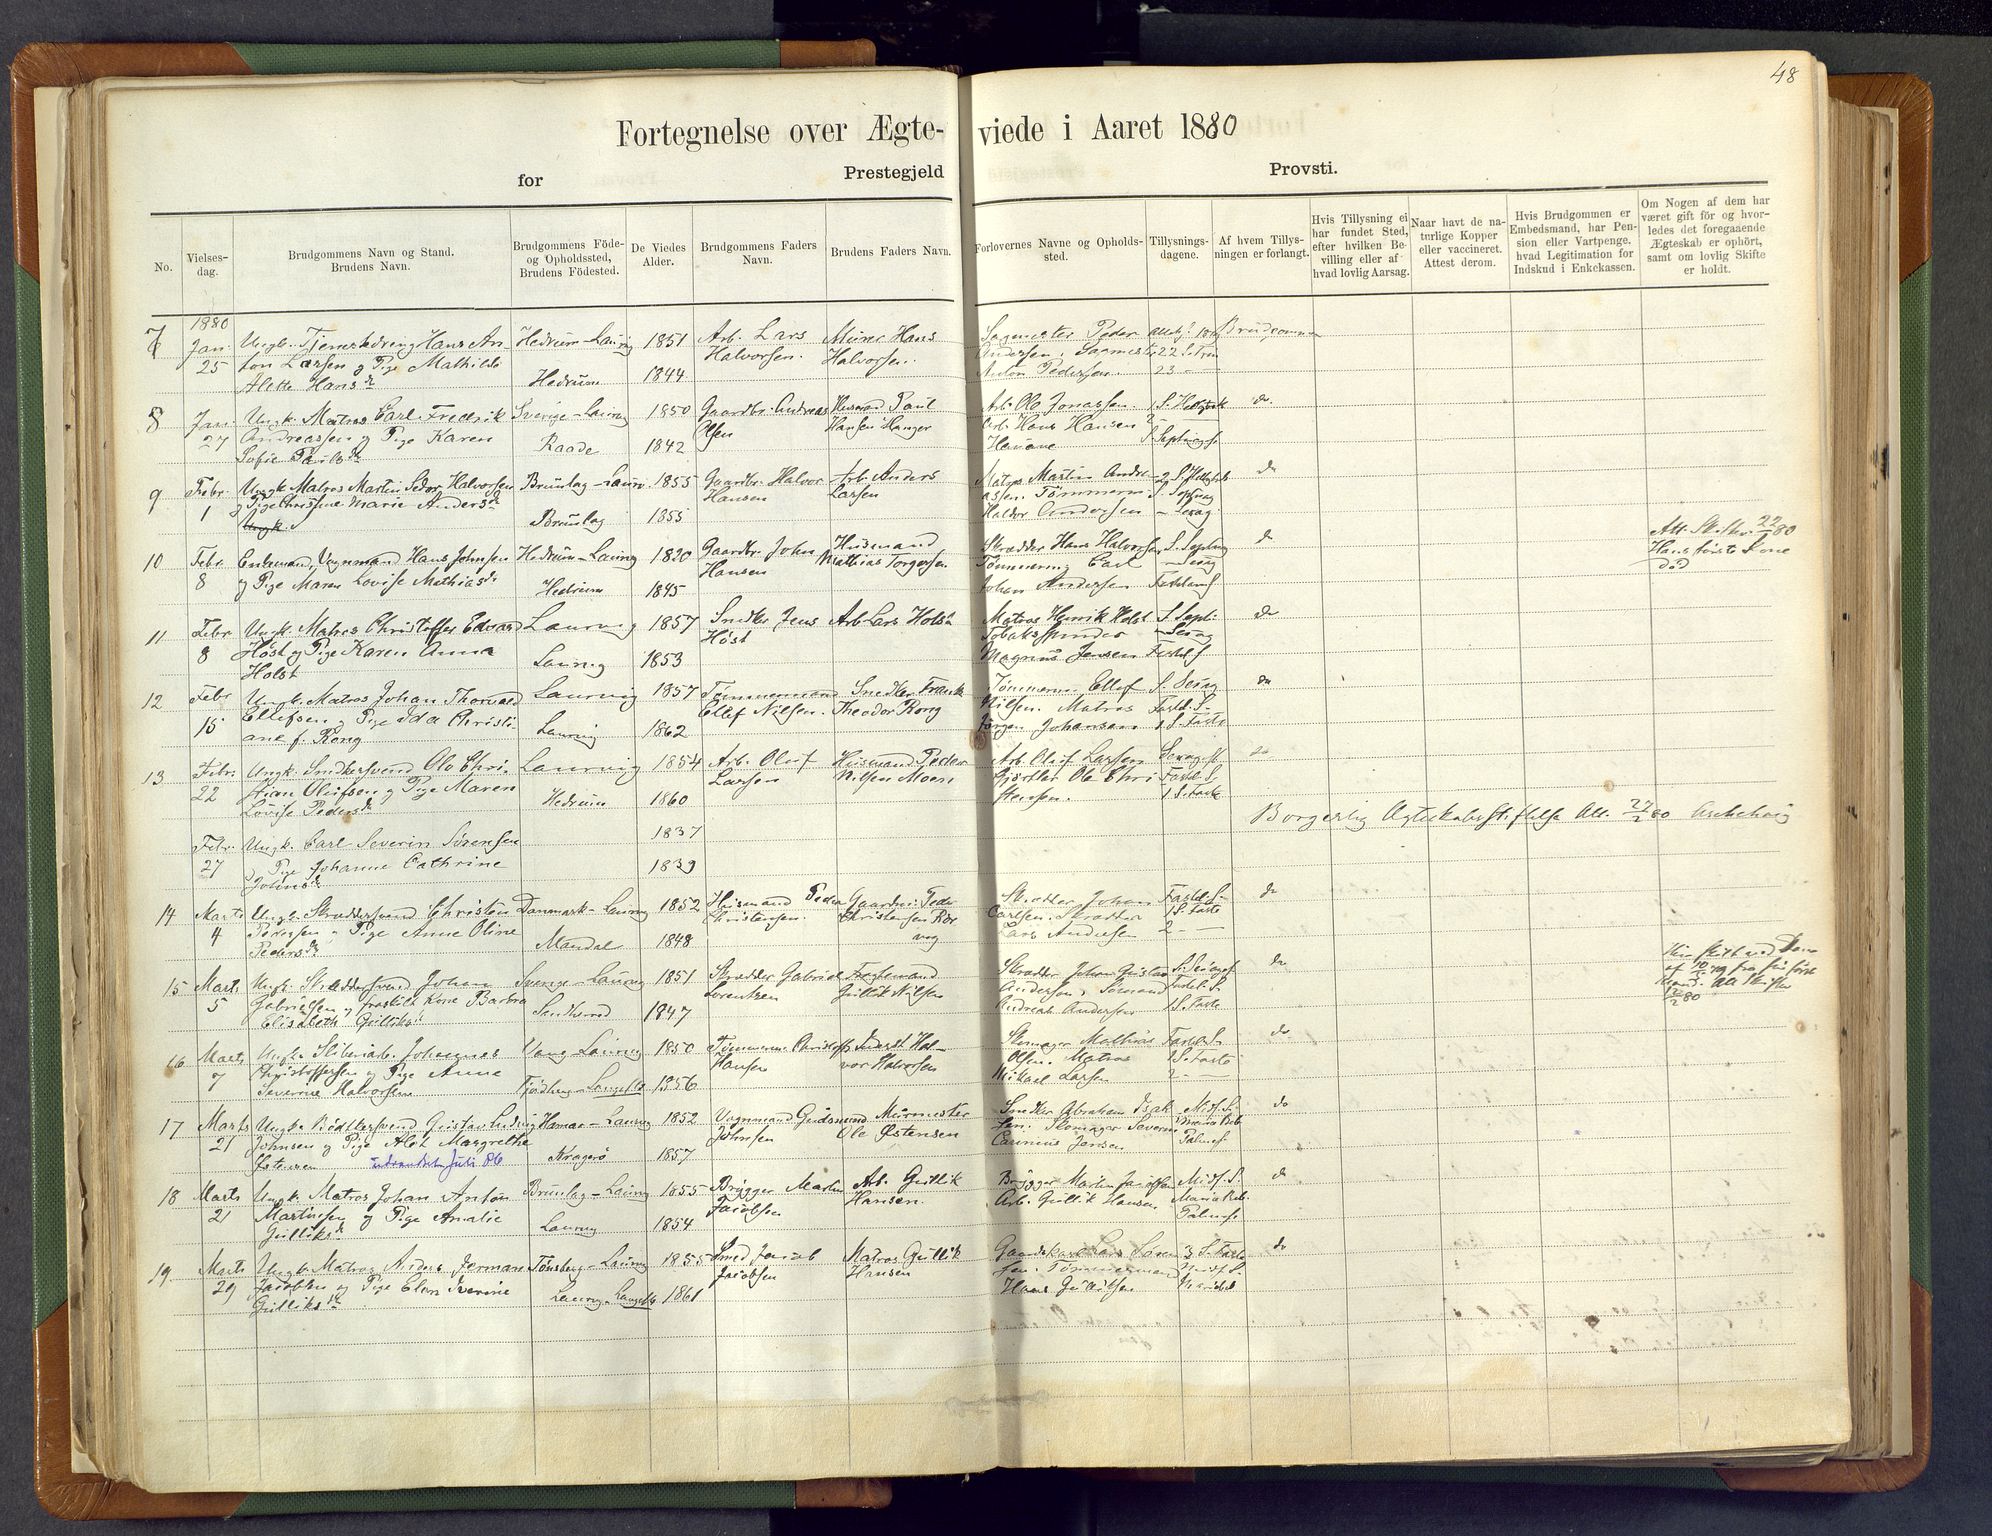 48
Fortegnelse over Ægte- viede i Aaret 1880
for Prestegjeld Provsti.
No.
Vielses-
dag.
Brudgommens Navn og Stand.
Brudens Navn.
Brudgommens Föde-
og Opholdssted,
Brudens Födested.
De Viedes
Alder.
Brudgommens Faders
Navn.
Brudens Faders Navn.
Forlovernes Navne og Opholds-
sted.
Tillysnings-
dagene.
Af hvem Tillys-
ningen er forlangt.
Hvis Tillysning ei
har fundet Sted,
efter hvilken Be-
villing eller af
hvad lovlig Aarsag.
Naar havt de na-
turlige Kopper
eller vaccineret.
Attest derom.
Hvis Brudgommen er
Embedsmand, har Pen-
sion eller Vartpenge.
hvad Legitimation for
Indskud i Enkekassen.
Om Nogen af dem har
været gift för og hvor-
ledes det foregaaende
Ægteskab er ophört,
samt om lovlig Skifte
er holdt.
1880
7
Jan.
25
Ungk. Tjenestedreng Hans An
ton Larsen og Pige Mathilde
Alette Hansd
Hedrum - Laurvig
Hedrum
1851
1844
Arb. Lars
Halvorsen.
Murer Hans
Halvorsen.
Sagmester Peder
Andersen. Sagmester
Anton Pedersen.
22 S. Trin
23 -
Brudgommen
8
Jan.
27
Ungk. Matros Carl Fredrik
Andreassen og Pige Karen
Sofie Paulsd
Sverige - Laurvig
Raade
1850
1842
Gaardbr. Andreas
Olsen
Husmand Paul
Hansen Hanger
Arb. Ole Jonassen.
Arb. Hans Hansen
do.
9
Febr.
1
Ungk. Matros Martin Sedor Halvorsen
og Pige Christine Marie Andersd
Ungk.
Brunlag - Laurv
Brunlag
1855
1855
Gaardbr. Halvor
Hansen
Arb. Anders
Larsen
Matros Martin Andre-
assen. Tømmerm
Halvor Andersen
do
10
Febr.
8
Enkemand, Vognmand Hans Johnsen
og Pige Maren Lovise Mathiasd
Hedrum - Laurvig
Hedrum
1820
1845
Gaardbr. John
Hansen
Husmand
Mathias Torgersen
Skrædder Hans Halvorsen
Tømmerm. Carl
Johan Andersen
S. Septuag
- Sexag
Fastelavnsf.
do
Att. Skifter 22/1 80
Hans første Kone
död
11
Febr
8
Ungk. Matros Christoffer Edvard
Höst og Pige Karen Anna
Holst
Laurvig
Laurvig
1857
1853
Snedker Jens
Höst
Arb Lars Holst
Matros Henrik Holst
Tobakspinder
Magnus Jensen
S. Sept:
- Sexag
do
12
Febr
15
Ungk. Matros Johan Thorvald
Ellefsen og Pige Ida Christi-
ane f. Rong
Laurvig
Laurvig
1857
1862
Tømmermand
Ellef Nilsen.
Snedker Frank
Theodor Rong
Tømmerm. Ellef
Nilsen. Matros
Jörgen Johansen
S. Sexag
Fastel. S.
1 S. Faste
do
13
Febr.
22
Ungk. Snedkersvend Ole Chri-
stian Olufsen og Pige Maren
Lovise Pedersd
Laurvig
Hedrum
1854
1860
Arb. Oluf
Larsen
Husmand Peder
Nilsen Moen
Arb. Oluf Larsen
Gjørtler Ole Chri
stensen.
Sexages
Fastel. S.
1 S. Faste
do
Febr.
27
Ungk. Carl Severin Sörensen
og Pige Johanne Cathrine
Johnsd
1837
1839
Borgerlig Ægteskabsstiftelse Att. 27/2 80 Aschehoug
14
Marts
4
Ungk. Skrædersvend Christen
Pedersen og Pige Anne Oline
Pedersd
Danmark - Laurvig
Mandal
1852
1848
Husmand Peder
Christensen.
Gaardbr. Peder
Christensen Rös
vag
Skrædder Johan
Carlsen. Skrædder
Lars Andersen
Fastel. S.
1 S. Faste
2 -
do
15
Marts
5
Ungk. Skræddersvend Johan
Gabrielsen og fraskilt Kone Barbra
Elisabeth Gulliksd
Sverige - Laurvig
Sandherred
1851
1847
Skrædder Gabriel
Lorentsen
Fragtemand
Gullik Nilsen
Skrædder Johan Gustav
Anderson, Sømand
Andreas Andersen
S. Sexagef.
Fastel. S.
1 S. Faste
do
Hun skilt ved Dom
af 10/5 79 fra sin først
Mand. Att Skifter
2 80
16
Marts
7
Ungk. Sliberiarb. Johannes
Christoffersen og Pige Anne
Severine Halvorsen
Vang - Laurvig
Fredsberg - Langestr
1850
1856
Tömmerm. Christoffer
Hansen
Inderst Hal-
vor Halvorsen
Skomager Mathias
Olsen. Matros
Mikael Larsen
Fastel. S.
1 S. Faste
2 -
do
17
Marts
21
Ungk. Bödkersvend Gustav Ludvig
Johnsen og Pige Alet Margrethe
Østensen
udvandret Juli 86
Hamar - Laurvig
Kragerö
1852
1857
Vognmand Gudmund
Johnsen
Murmester
Ole Østensen
Snedker Abraham Isak
sen. Skomager Severin
Carinius Jensen
Midf. S.
Maria Beb.
Palmes.
do
18
Marts
21
Ungk. Matros Johan Anton
Martinsen og Pige Amalie
Gulliksd
Brunlag - Laurvig
Laurvig
1855
1854
Brygger Martin
Jacobsen
Arb. Gullik
Hansen.
Brygger Martin Jacobsen
Arb. Gullik Hansen
Midf. S.
Maria Beb.
Palmes.
do
19.
Marts
29
Ungk. Matros Anders Herman
Jacobsen og Pige Elen Severine
Gulliksd
Tønsberg - Laurvig
Laurvig - Langestr
1855
1861
Smed Jacob
Jacobsen
Matros Gullik
Hansen
Gaardskarl Lars Lorent
sen. Tömmermand
Hans Jacobsen
3 S. Faste
Midf. S.
Mariæ Beb.
do